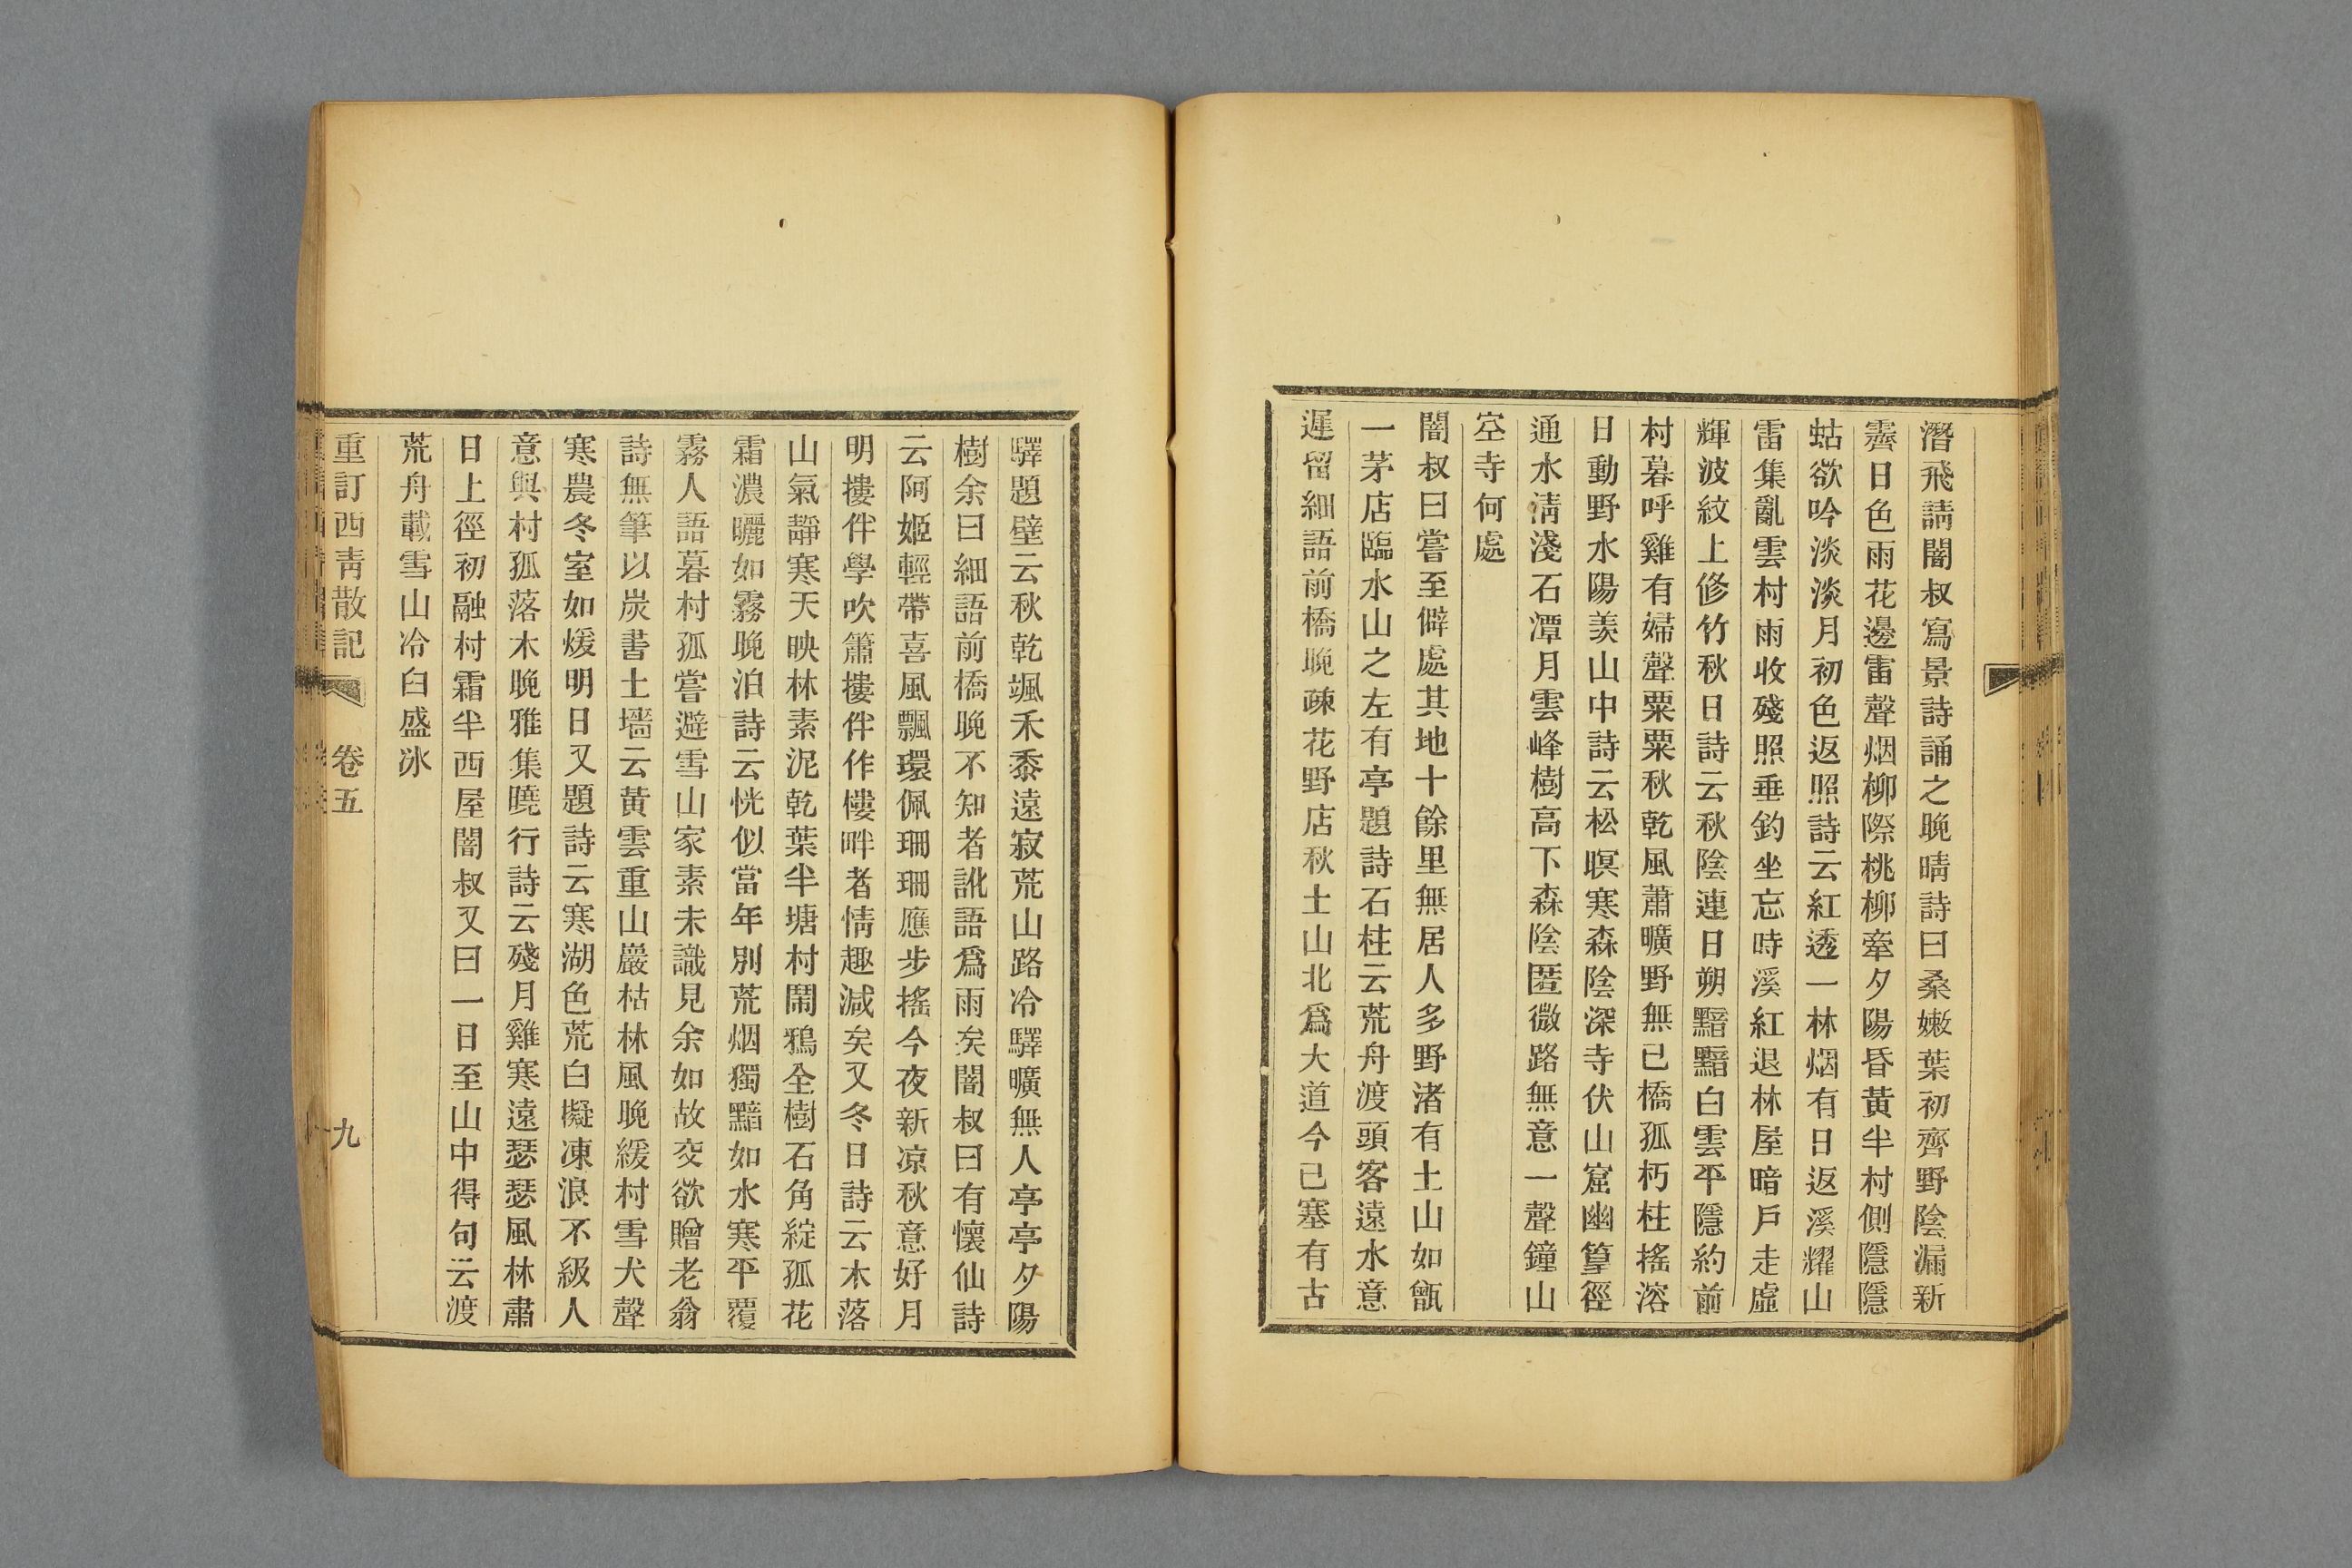 潛飛請闇叔寫景詩誦之晚晴詩曰桑嫩葉初齊野陰漏新
霽日色雨花邊雷聲烟柳際桃柳牽夕陽昏黃半村側隱隱
蛄欲吟淡淡月初色返照詩云紅透一林烟有日返溪耀山
雷集亂雲村雨收殘照垂釣坐忘時溪紅退林屋暗戶走虛
輝波紋上修竹秋日詩云秋陰連日朔黯黯白雲平隱約前
村暮呼雞有婦聲粟粟秋乾風蕭曠野無已橋孤朽柱搖溶
日動野水陽羨山中詩云松暝寒森陰深寺伏山窟幽篁徑
通水淸淺石潭月雲峰樹高下森陰匿微路無意一聲鐘山
空寺何處
闇叔曰嘗至僻處其地十餘里無居人多野渚有土山如甑
一茅店臨水山之左有亭題詩石柱云荒舟渡頭客遠水意
遲留細語前橋晚疎花野店秋土山北爲大道今已塞有古
驛題壁云秋乾颯禾黍遠寂荒山路冷驛曠無人亭亭夕陽
樹余曰細語前橋晚不知者訛語爲雨矣闇叔曰有懷仙詩
云阿姬輕帶喜風飄環佩珊珊應步搖今夜新凉秋意好月
明摟伴學吹簫摟伴作樓畔者情趣減矣又冬日詩云木落
山氣靜寒天映林素泥乾葉半塘村鬧鴉全樹石角綻孤花
霜濃曬如霧晚泊詩云恍似當年別荒烟獨黯如水寒平覆
霧人語暮村孤嘗避雪山家素未識見余如故交欲贈老翁
詩無筆以炭書土墻云黃雲重山巖枯林風晚緩村雪犬聲
寒農冬室如煖明日又題詩云寒湖色荒白擬凍浪不級人
意與村孤落木晚雅集曉行詩云殘月雞寒遠瑟瑟風林肅
日上徑初融村霜半西屋闇叔又曰一日至山中得句云渡
荒舟載雪山冷臼盛冰
重訂西靑散記 卷五 九